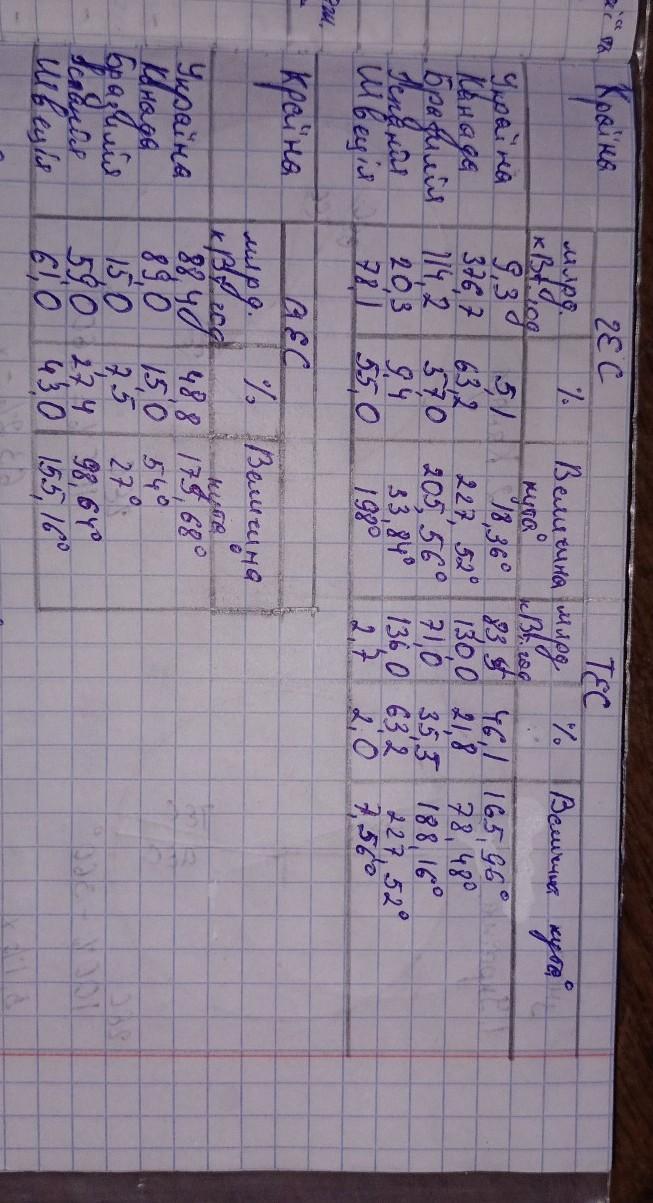 Країна ГЕС ТЕС
млрд. кВт.год % Величина кута° млрд кВт.год % Величина кута°
Україна 9,3 5,1 18,36° 83,9 46,1 165,96°
Канада 376,7 63,2 227,52° 130,0 21,8 78,48°
Бразилія 114,2 57,0 205,56° 71,0 35,5 188,16°
Іспанія 20,3 9,4 33,84° 136,0 63,2 227,52°
Швеція 78,1 55,0 198° 2,7 2,0 7,56°
Країна АЕС
млрд. кВт.год % Величина кута°
Україна 88,4 48,8 175,68°
Канада 89,0 15,0 54°
Бразилія 15,0 7,5 27°
Іспанія 59,0 27,4 98,64°
Швеція 61,0 43,0 155,16°